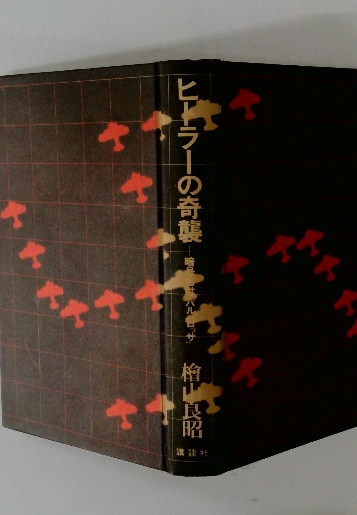 ヒトラーの奇襲
暗号名はバルバロッサ
檜山良昭
講談社